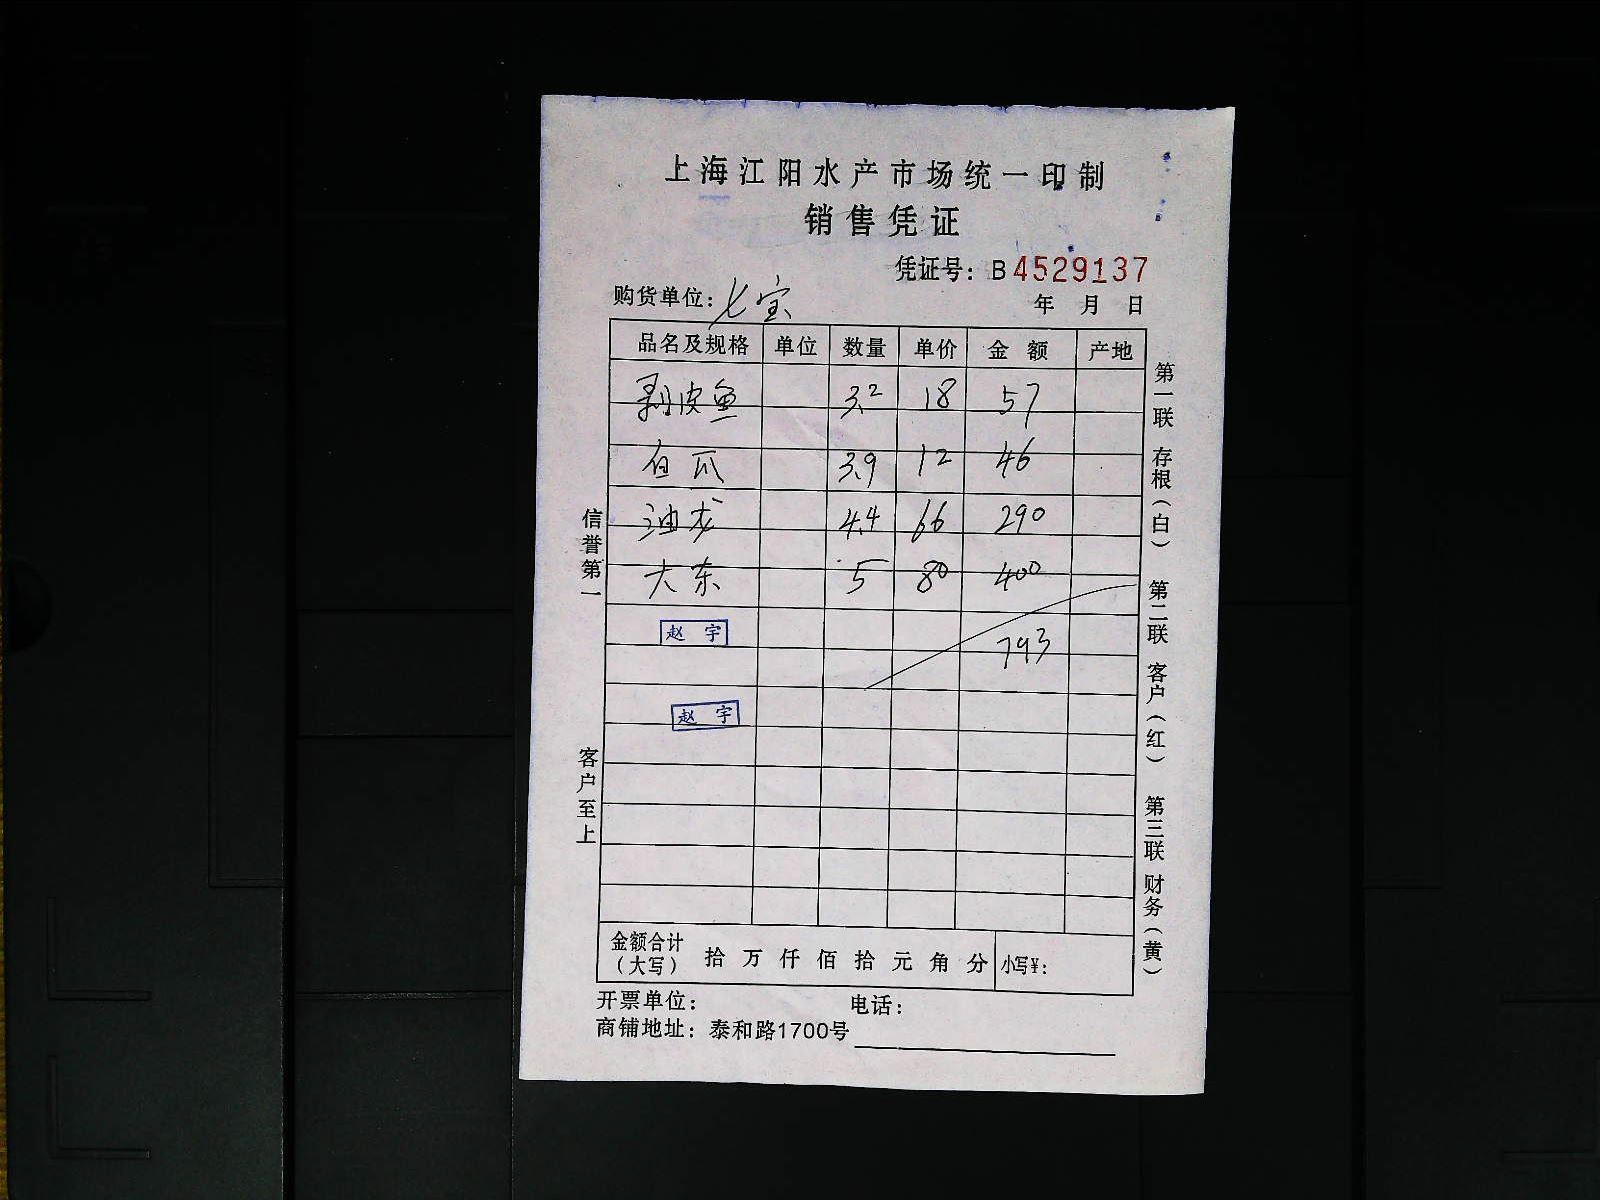 上海江阳水产市场统一印制
销售凭证
凭证号：B4529137
购货单位：七宝
年 月 日
品名及规格 单位 数量 单价 金额 产地
剥皮鱼 3.2 18 57
白爪 3.9 12 46
油龙 4.4 66 290
大东 5 80 400
赵宇 793
赵宇
金额合计（大写） 拾万仟佰拾元角分 小写¥：
开票单位： 电话：
商铺地址：泰和路1700号
信誉第一
客户至上
第一联 存根（白）
第二联 客户（红）
第三联 财务（黄）